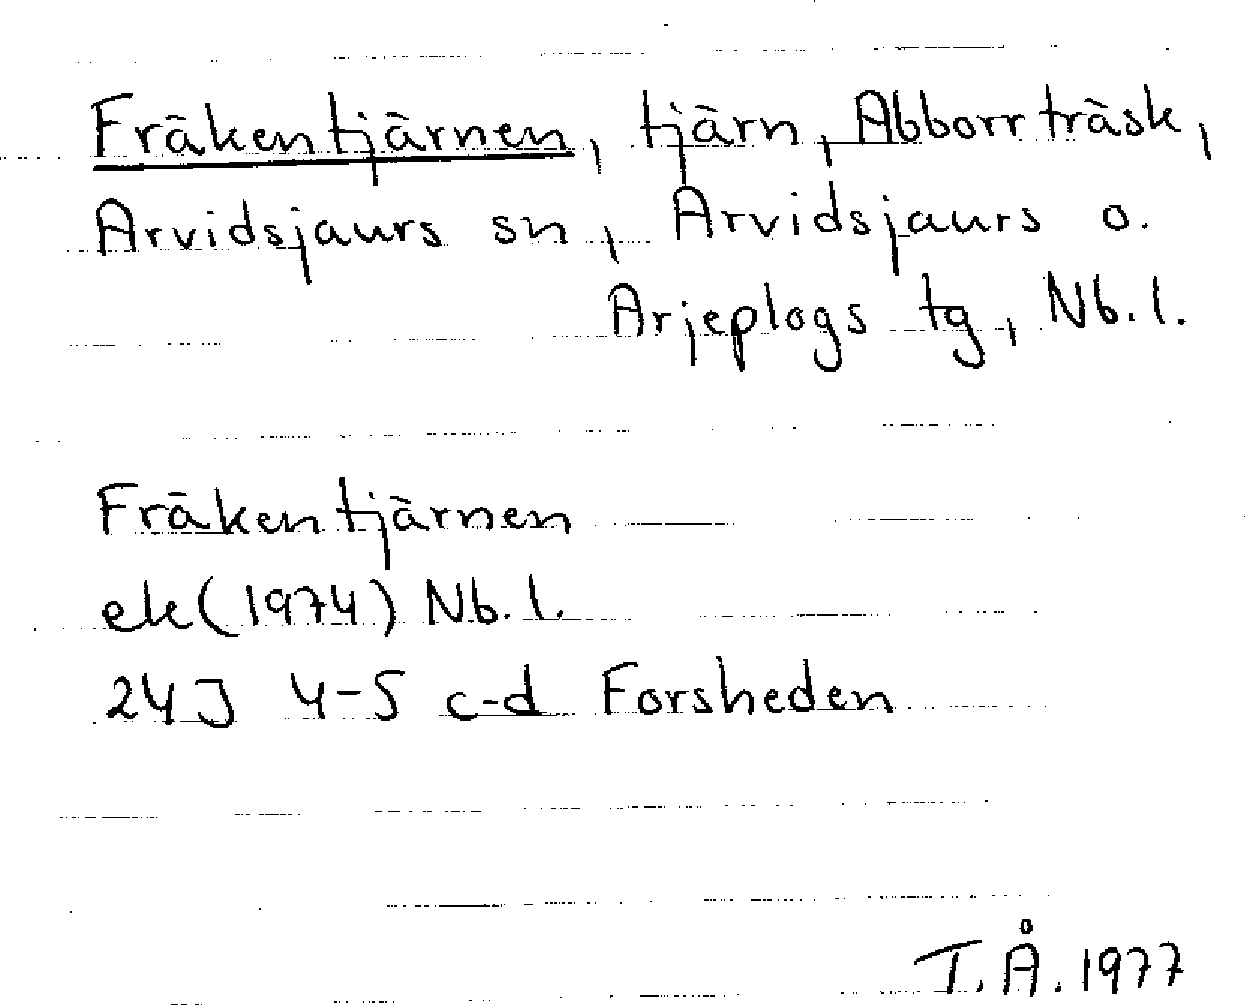 Fräkentjärnen, tjärn, Abborrträsk,
Arvidsjaurs sn, Arvidsjaurs o.
Arjeplogs tg, Nb.l.
Fräkentjärnen
ek(1974) Nb.l.
24J 4-5 c-d Forsheden
T.Å.1977